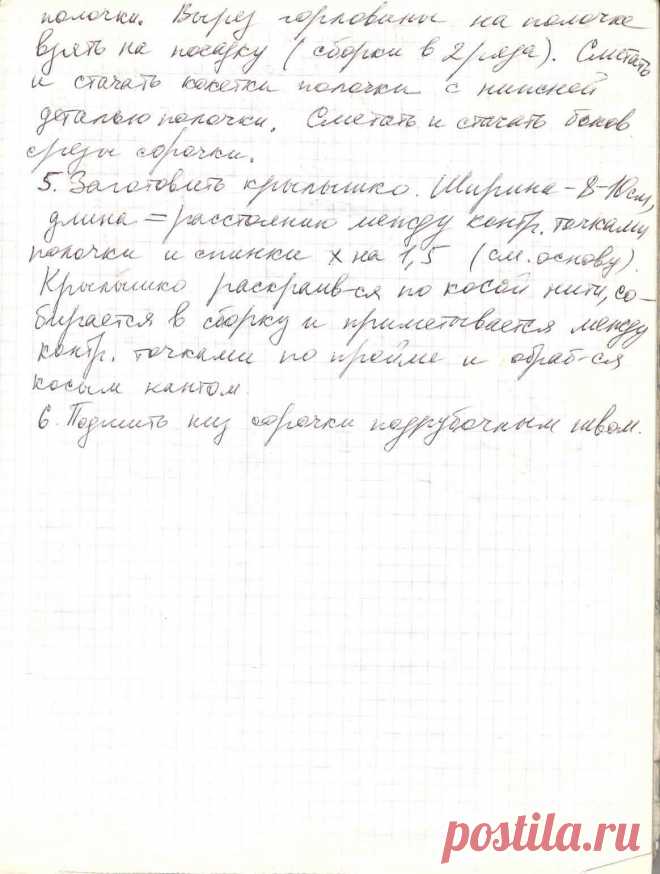 полочки. Вырез горловины на полочке
взять на посадку (сборки в 2 ряда). Сметать
и стачать кокетки полочки с нижней
деталью полочки. Сметать и стачать боков.
срезы сорочки.
5. Заготовить крылышко. Ширина - 8-10 см,
длина = расстоянию между контр. точками
полочки и спинки х на 1,5 (см. основу).
Крылышко раскраив-ся по косой нити, со-
бирается в сборку и приметывается между
контр. точками по пройме и обраб-ся
косым кантом.
6. Подшить низ сорочки подрубочным швом.
postila.ru